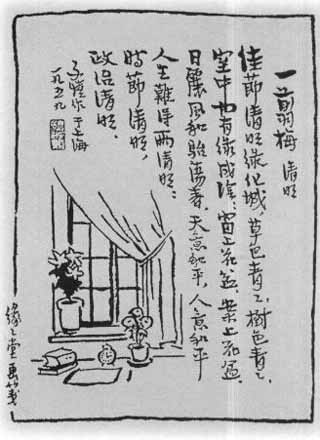 一剪梅 清明
佳節清明绿化城,草色青々,樹色青々.
室中也有绿成陰:窗上花盆,案上花盆.
日麗風和駘蕩春,天意和平,人意和平
人生難得兩清明:
時節清明,
政治清明.
子愷作于上海
一九五九
缘々堂畫箋